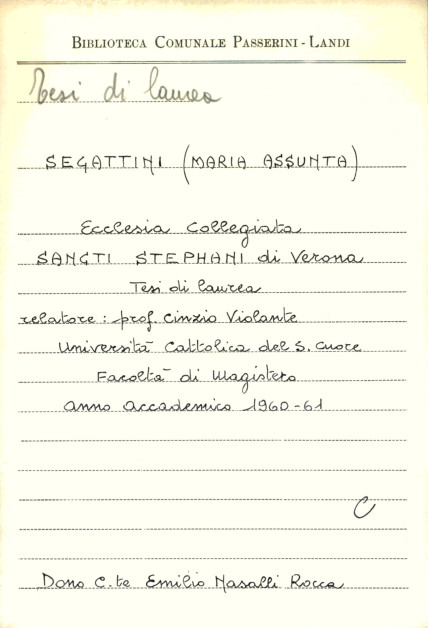 BIBLIOTECA COMUNALE PASSERINI - LANDI
Tesi di laurea
SEGATTINI (MARIA ASSUNTA)
Ecclesia Collegiata
SANCTI STEPHANI di Verona
Tesi di laurea
relatore: prof. Cinzio Violante
Università Cattolica del S. Cuore
Facoltà di Magistero
anno accademico 1960-61
C
Dono C.te Emilio Nasalli Rocca